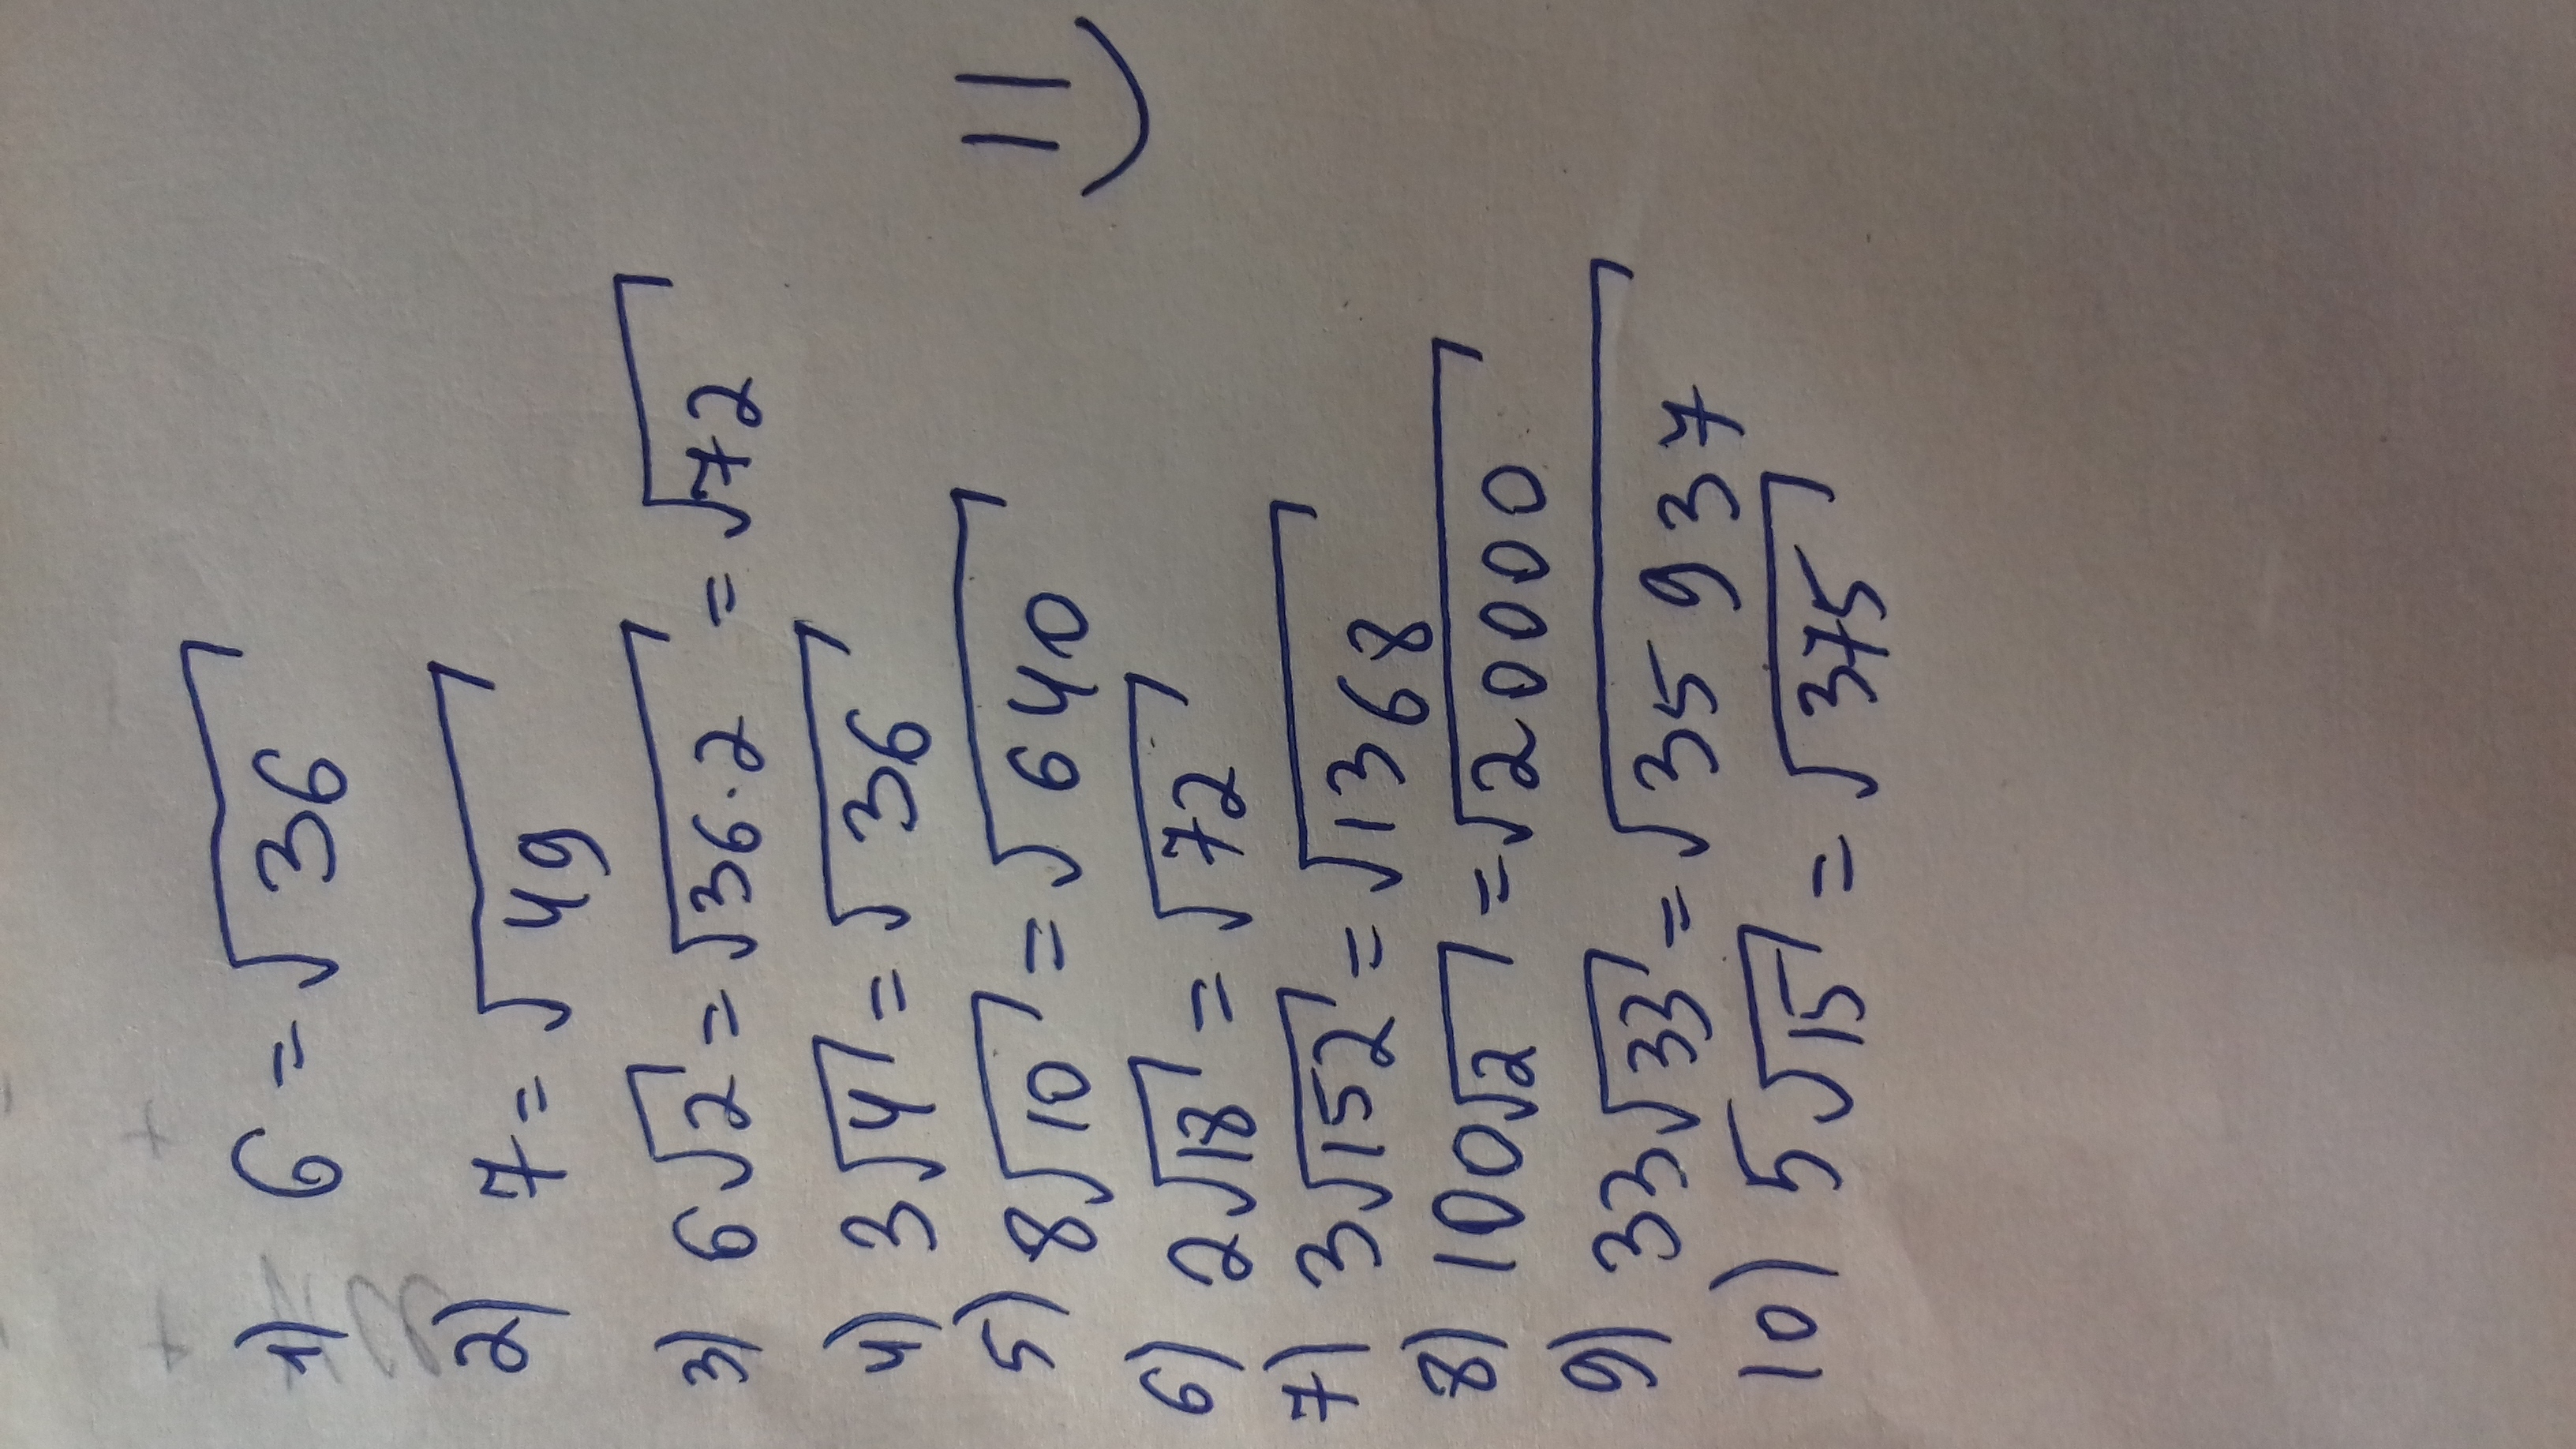 1) 6 = √36
2) 7 = √49
3) 6√2 = √36·2 = √72
4) 3√4 = √36
5) 8√10 = √640
6) 2√18 = √72
7) 3√152 = √1368
8) 100√2 = √20000
9) 33√33 = √35937
10) 5√15 = √375
11)